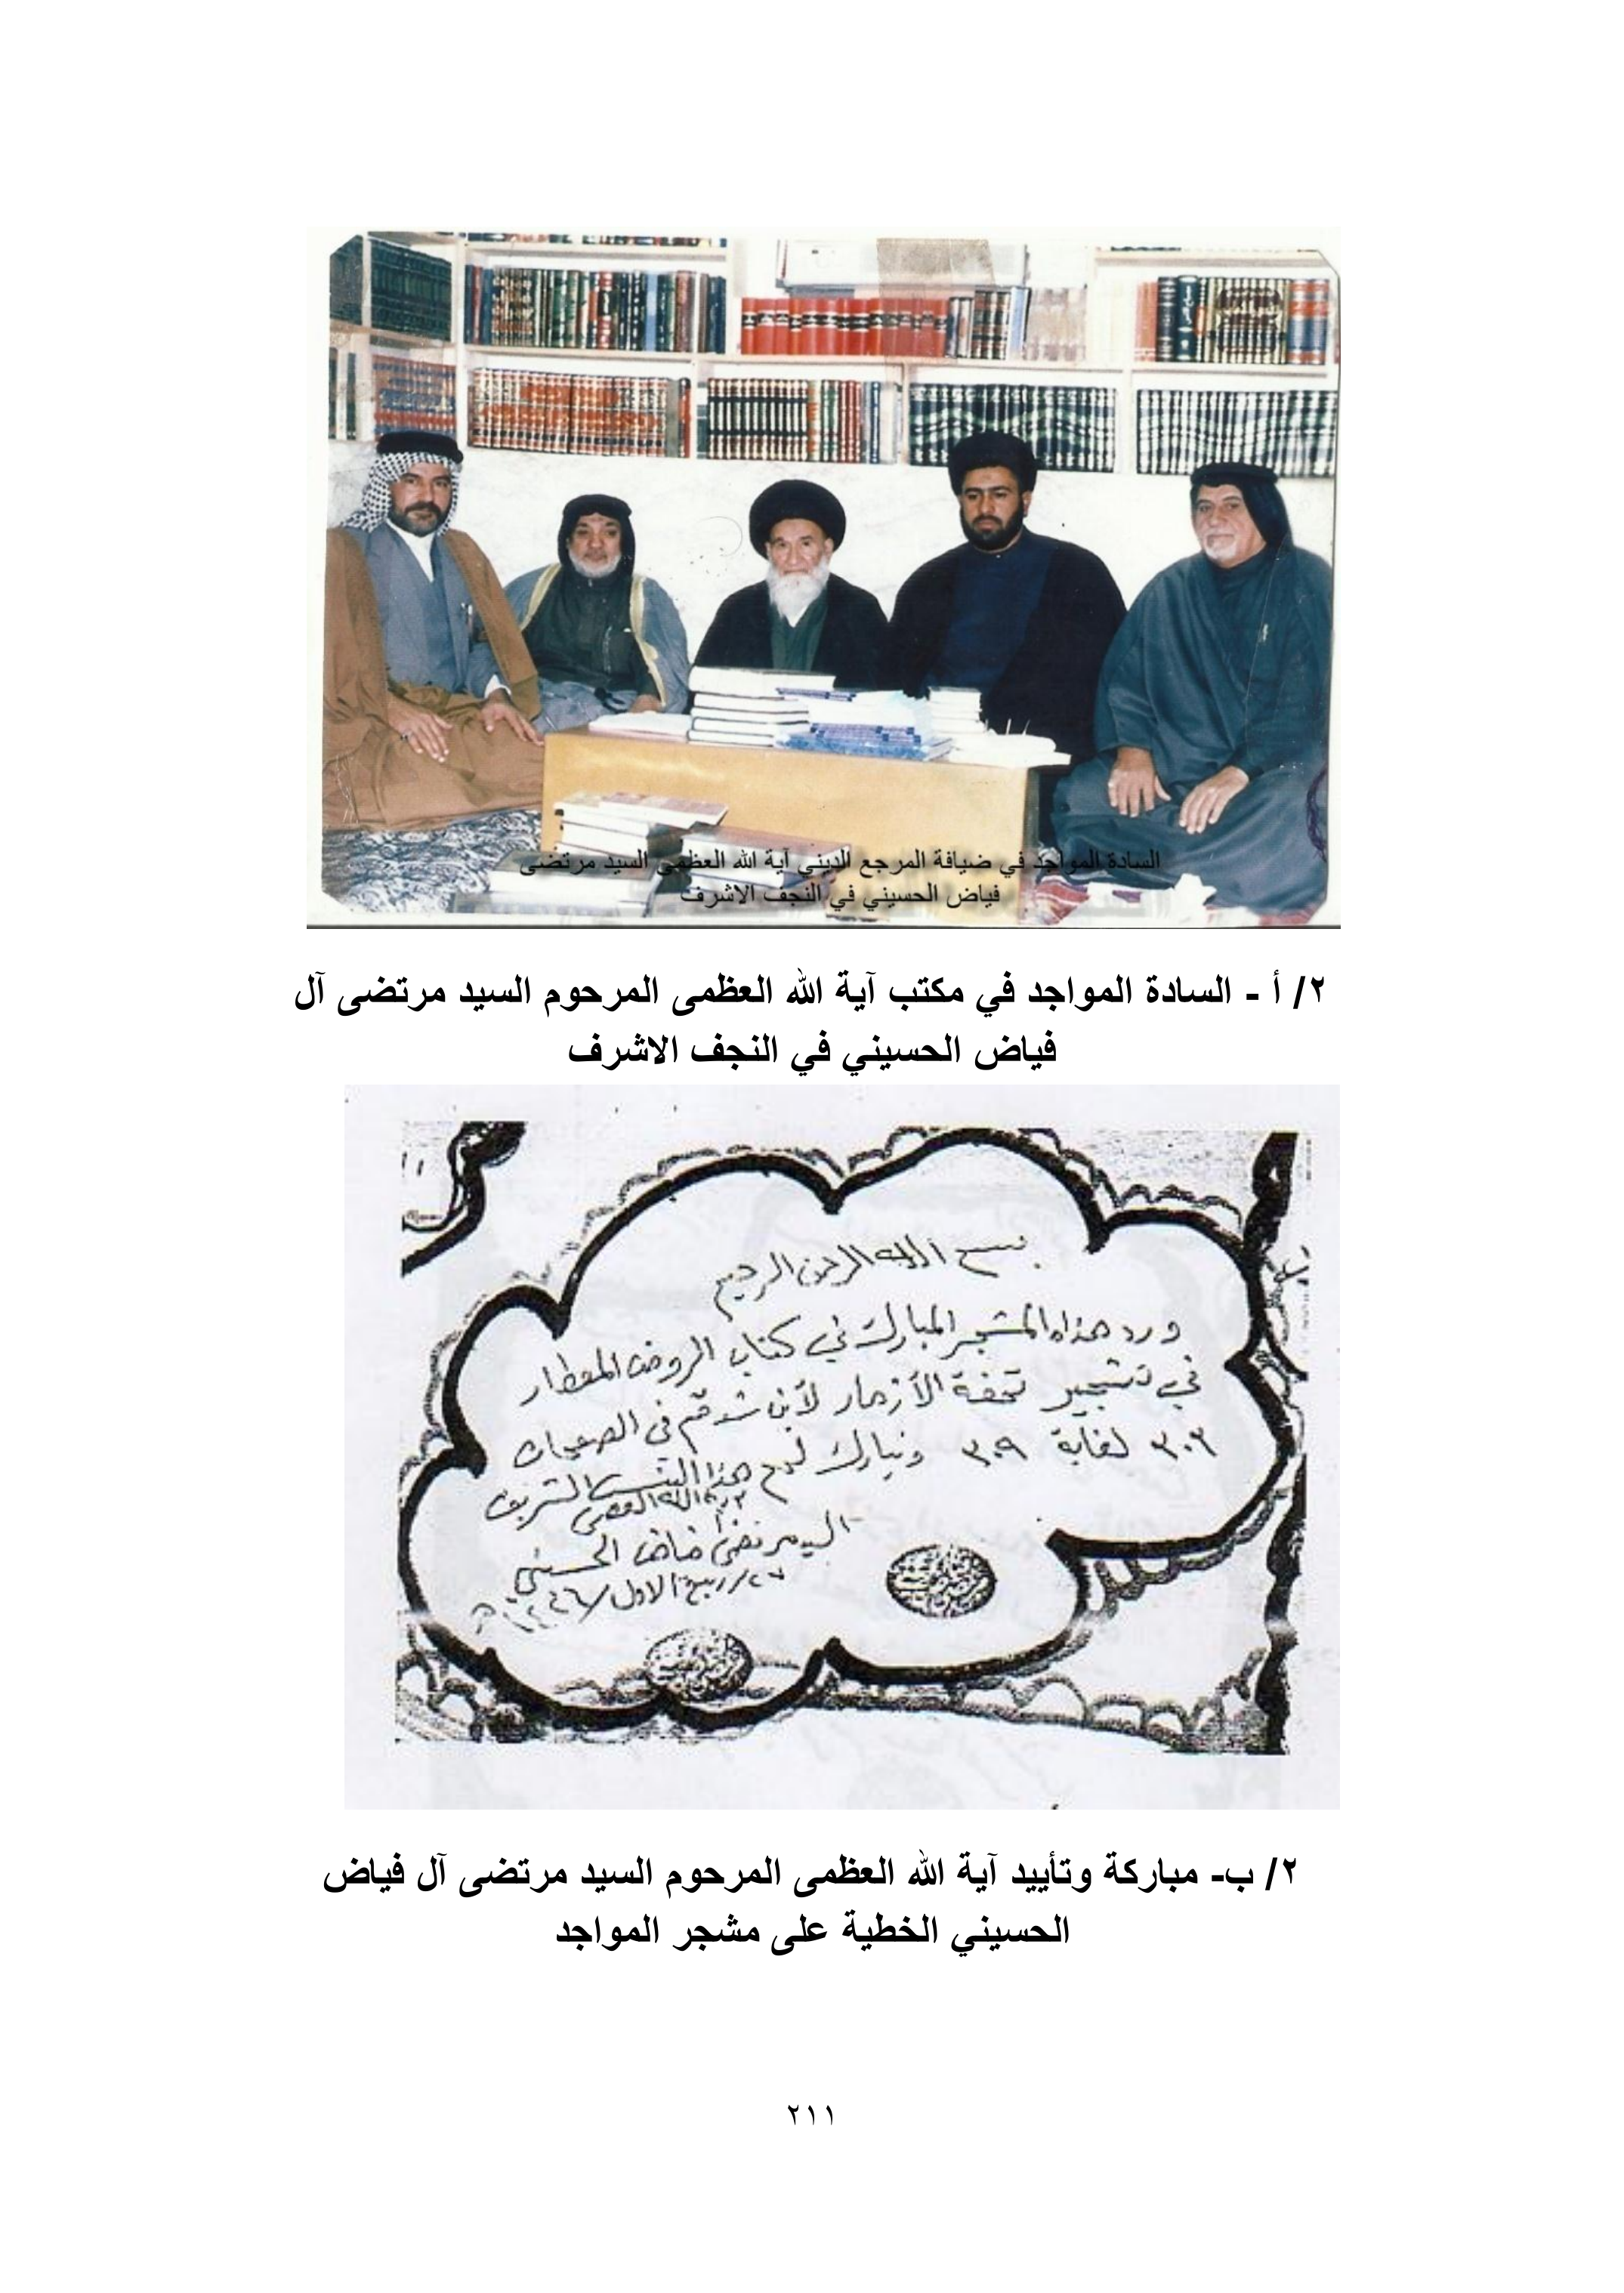 السادة المواجد في ضيافة المرجع الديني آية الله العظمى السيد مرتضى
فياض الحسيني في النجف الاشرف
٢/ أ - السادة المواجد في مكتب آية الله العظمى المرحوم السيد مرتضى آل
فياض الحسيني في النجف الاشرف
بسم الله الرحمن الرحيم
ورد هذا المشجر المبارك في كتاب الروض المعطار
في تشجير تحفة الأزهار لأبن شدقم في الصفحات
٣٠٣ لغاية ٣٠٩ ونبارك لهم هذا النسب الشريف
آية الله العظمى
السيد مرتضى فياض الحسيني
٢٧/ربيع الاول/
٢/ ب- مباركة وتأييد آية الله العظمى المرحوم السيد مرتضى آل فياض
الحسيني الخطية على مشجر المواجد
٢١١